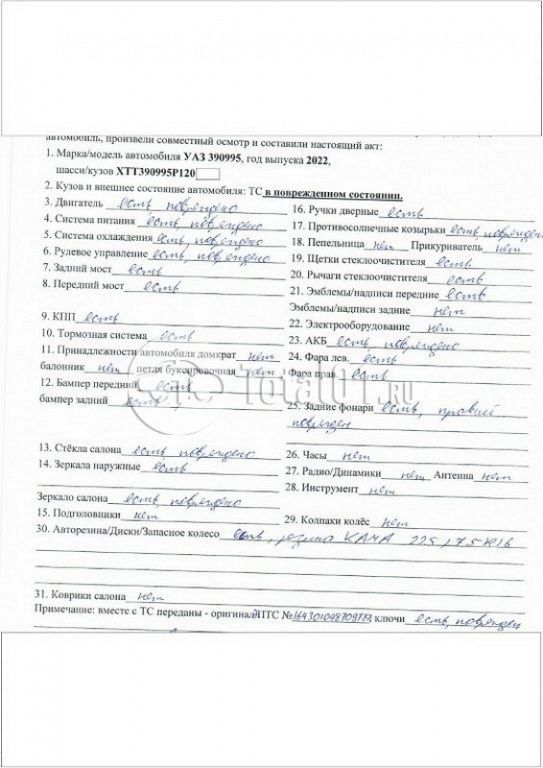 автомобиль, произвели совместный осмотр и составили настоящий акт:
1. Марка/модель автомобиля УАЗ 390995, год выпуска 2022,
шасси/кузов XTT390995P120
2. Кузов и внешнее состояние автомобиля: ТС в поврежденном состоянии.
3. Двигатель есть повреждено
4. Система питания есть, повреждено
5. Система охлаждения есть, повреждено
6. Рулевое управление есть, повреждено
7. Задний мост есть
8. Передний мост есть
9. КПП есть
10. Тормозная система есть
11. Принадлежности автомобиля домкрат нет
балонник нет петля буксировочная нет
12. Бампер передний есть
бампер задний есть
13. Стёкла салона есть, повреждено
14. Зеркала наружные есть
Зеркало салона есть, повреждено
15. Подголовники нет
16. Ручки дверные есть
17. Противосолнечные козырьки есть, повреждено
18. Пепельница нет Прикуриватель нет
19. Щетки стеклоочистителя есть
20. Рычаги стеклоочистителя есть
21. Эмблемы/надписи передние есть
Эмблемы/надписи задние нет
22. Электрооборудование нет
23. АКБ есть, повреждено
24. Фара лев. есть
Фара прав. есть
25. Задние фонари есть, правый
поврежден
26. Часы нет
27. Радио/Динамики нет Антенна нет
28. Инструмент нет
29. Колпаки колёс нет
30. Авторезина/Диски/Запасное колесо есть, резина КАМА 225/75 R16
31. Коврики салона нет
Примечание: вместе с ТС переданы - оригинал ПТС № ключи есть, поврежден
Total01.ru